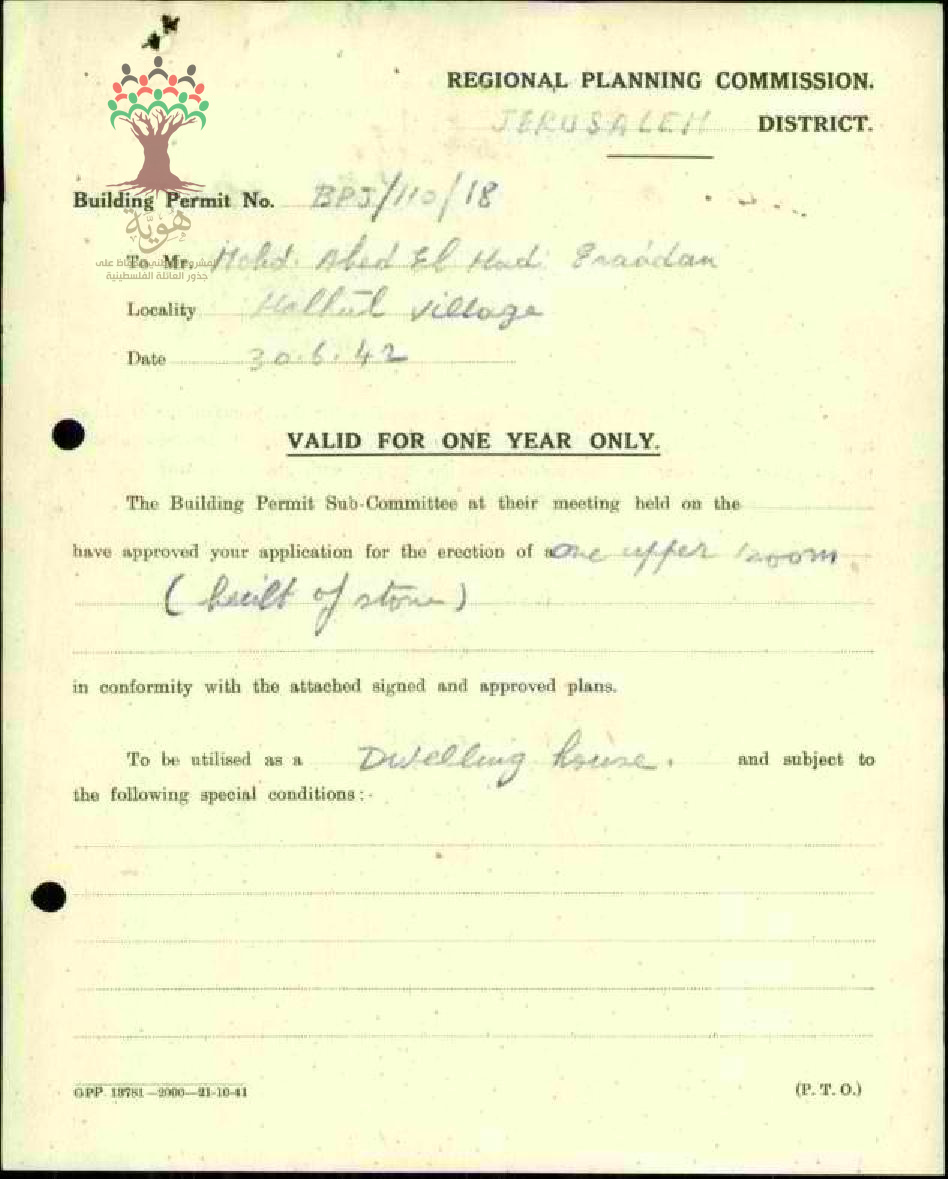 REGIONAL PLANNING COMMISSION.
JERUSALEM DISTRICT.
Building Permit No. BPJ/110/18
هُوِيَّة
To Mr. Mohd. Abed El Hadi
جذور العائلة الفلسطينية
Locality Halhul village
Date 30.6.42
VALID FOR ONE YEAR ONLY.
The Building Permit Sub-Committee at their meeting held on the
have approved your application for the erection of a one upper room
( built of stone )
in conformity with the attached signed and approved plans.
To be utilised as a Dwelling house. and subject to
the following special conditions:-
GPP. 13781—2000—21-10-41
(P. T. O.)